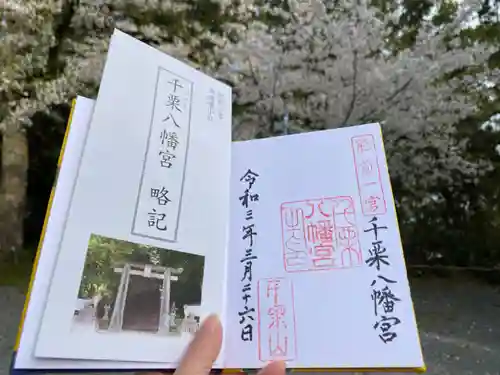 千栗八幡宮 略記
肥前一宮
千栗八幡宮
千栗
八幡宮
千栗山
令和三年三月二十六日